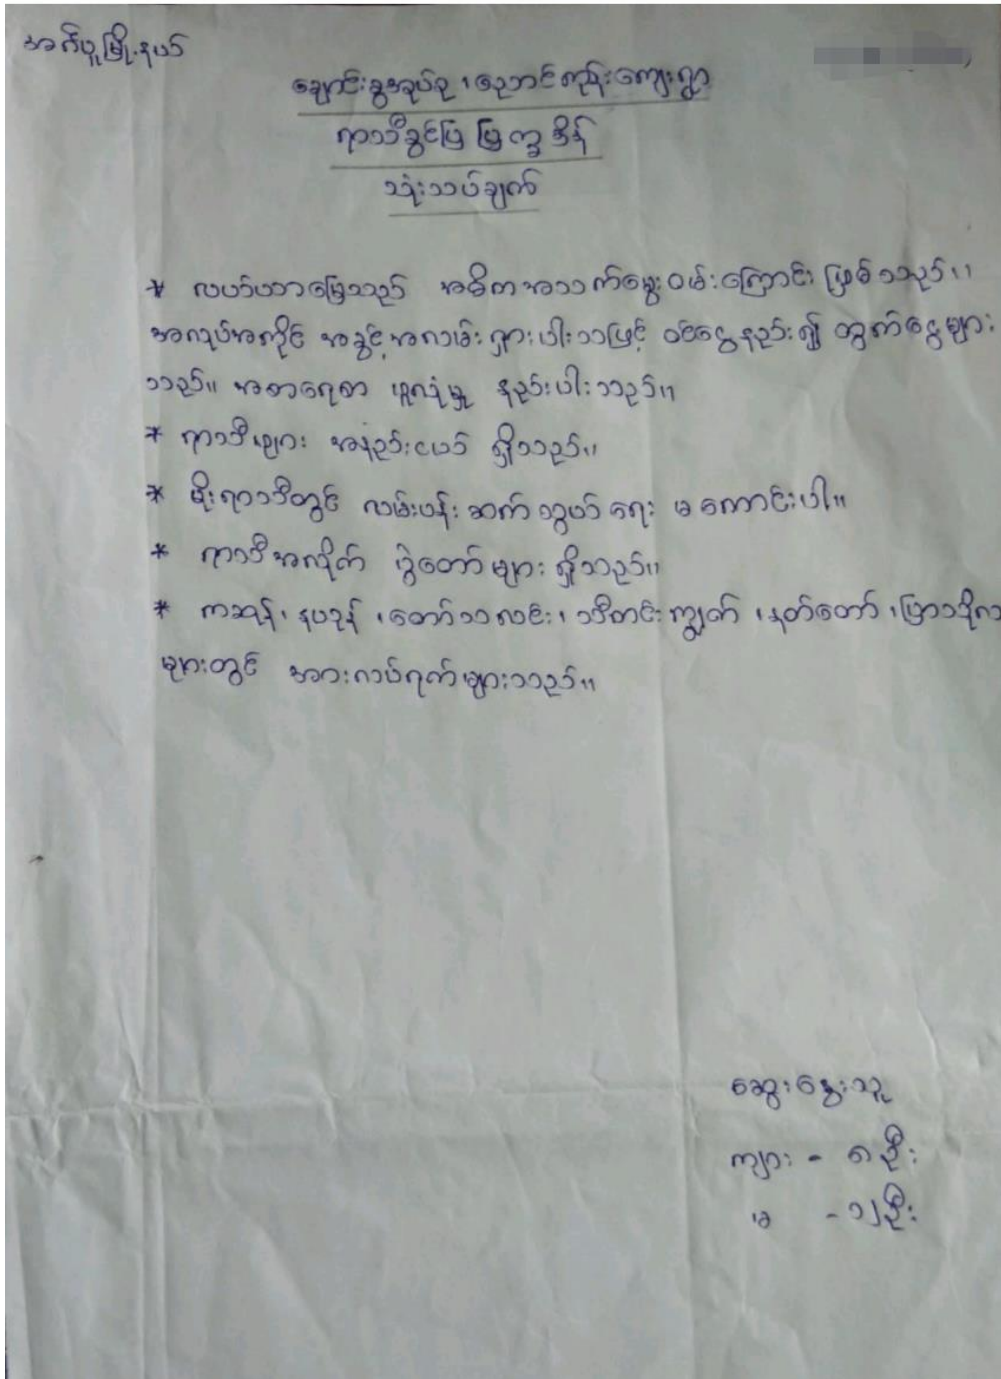 အင်္ဂပူမြို့နယ်
ချောင်းခွအုပ်စု၊ ညောင်ကုန်းကျေးရွာ
ရာသီခွင်ပြ ပြက္ခဒိန်
သုံးသပ်ချက်
* လယ်ယာမြေသည် အဓိကအသက်မွေးဝမ်းကြောင်း ဖြစ်သည်။
အလုပ်အကိုင် အခွင့်အလမ်း ရှားပါးသဖြင့် ဝင်ငွေနည်း၍ ထွက်ငွေများ
သည်။ အစားရေစာ ဖူလုံမှု နည်းပါးသည်။
* ရာသီများ အနည်းငယ် ရှိသည်။
* မိုးရာသီတွင် လမ်းပန်းဆက်သွယ်ရေး မကောင်းပါ။
* ရာသီအလိုက် ပွဲတော်များ ရှိသည်။
* ကဆုန်၊ နယုန်၊ တော်သလင်း၊ သီတင်းကျွတ်၊ နတ်တော်၊ ပြာသိုလ
များတွင် အားလပ်ရက်များသည်။
ဆွေးနွေးသူ
ကျား - ၈ဦး
မ - ၁၂ဦး